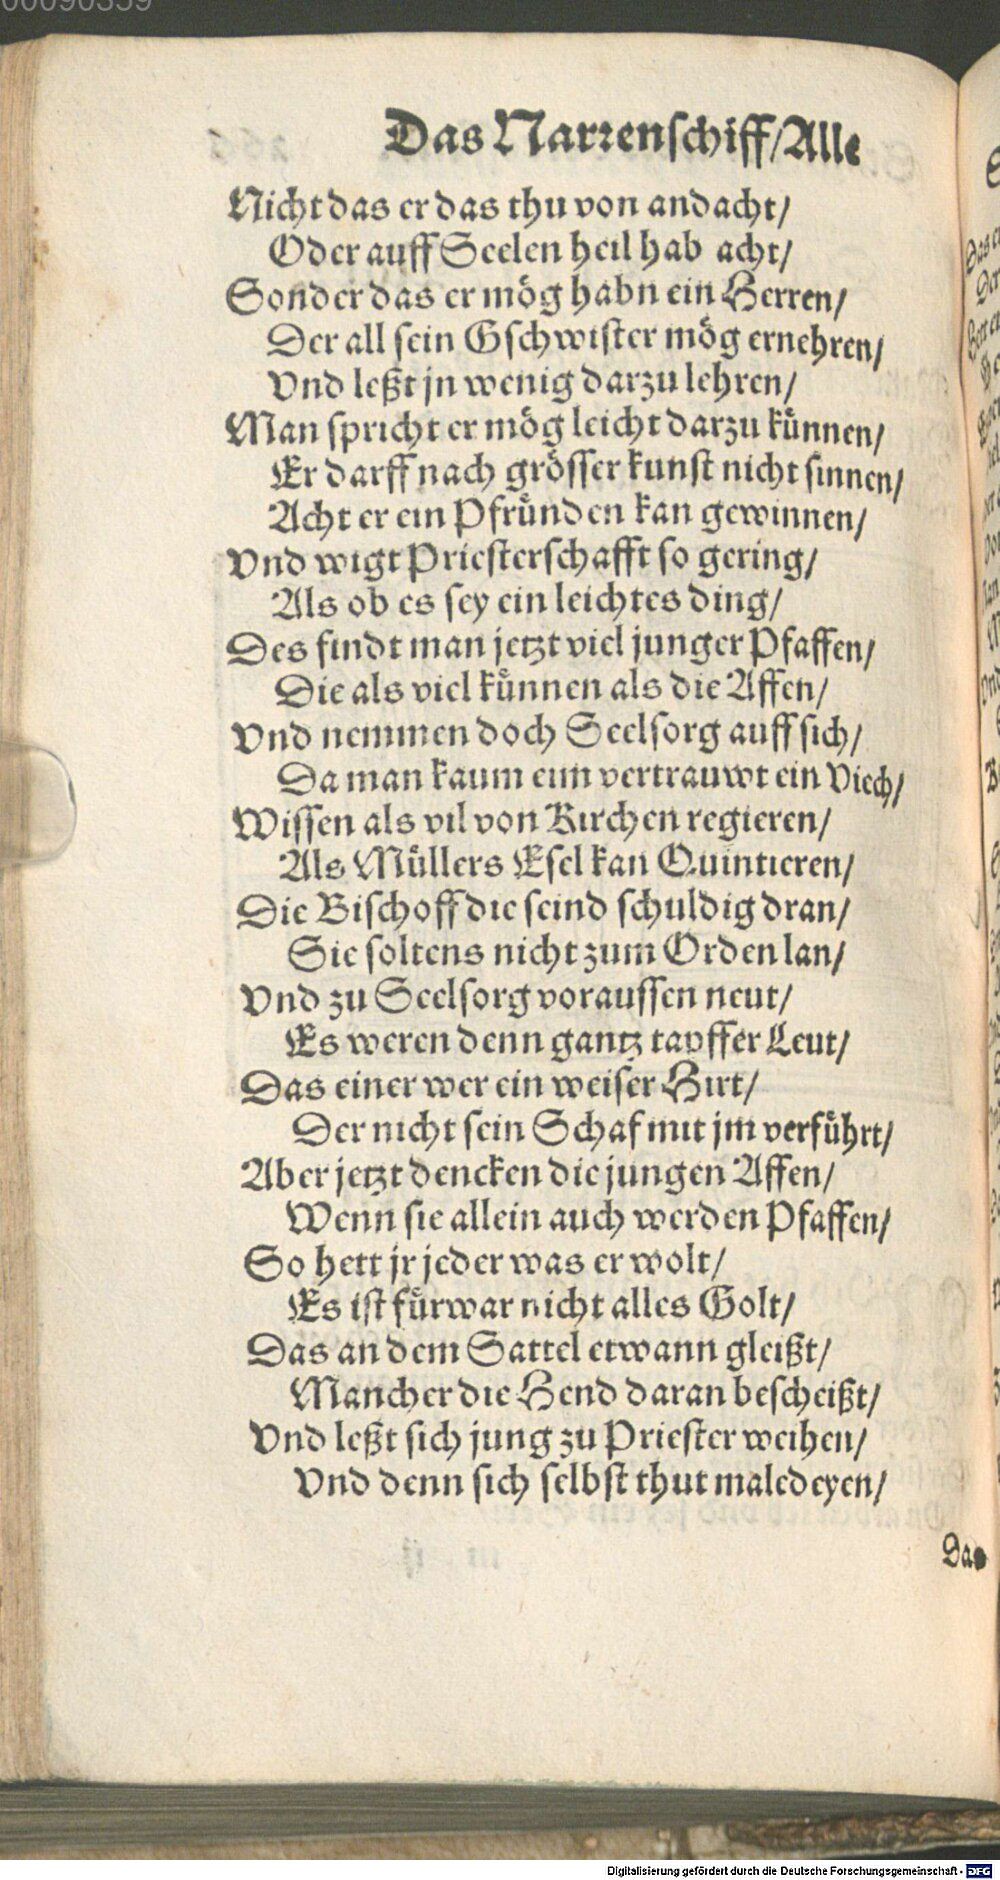 00090359
Das Narrenschiff/Alle
Nicht das er das thu von andacht/
Oder auff Seelen heil hab acht/
Sonder das er mög habn ein Herren/
Der all sein Gschwister mög ernehren/
Vnd leßt jn wenig darzu lehren/
Man spricht er mög leicht darzu künnen/
Er darff nach grösser kunst nicht sinnen/
Acht er ein Pfründen kan gewinnen/
Vnd wigt Priesterschafft so gering/
Als ob es sey ein leichtes ding/
Des findt man jetzt viel junger Pfaffen/
Die als viel künnen als die Affen/
Vnd nemmen doch Seelsorg auff sich/
Da man kaum eim vertrauwt ein Viech/
Wissen als vil von Kirchen regieren/
Als Müllers Esel kan Quintieren/
Die Bischoff die seind schuldig dran/
Sie soltens nicht zum Orden lan/
Vnd zu Seelsorg voraussen neut/
Es weren denn gantz tapffer Leut/
Das einer wer ein weiser Hirt/
Der nicht sein Schaf mit jm verführt/
Aber jetzt dencken die jungen Affen/
Wenn sie allein auch werden Pfaffen/
So hett jr jeder was er wolt/
Es ist fürwar nicht alles Golt/
Das an dem Sattel etwann gleißt/
Mancher die Hend daran bescheißt/
Vnd leßt sich jung zu Priester weihen/
Vnd denn sich selbst thut maledeyen/
Das
Digitalisierung gefördert durch die Deutsche Forschungsgemeinschaft - DFG